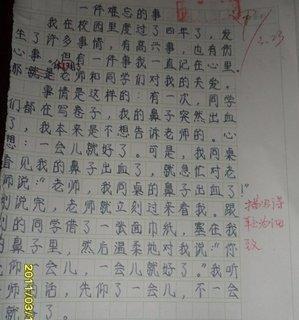 一件难忘的事
我在校园里度过了四年了，发
生了许多事情，有高兴事，也有伤
心事，但有一件我一直记在心里，
都就是老师和同学们对我的关爱。
事情是这样的：有一次，同学
们都在写卷子，我的鼻子突然出血
了，我本来是不想告诉老师的。心
想：一会儿就好了。可是，我同桌
看见我的鼻子出血了，就急忙对老
师说：“老师，我同桌的鼻子出血了！”
刚说完，老师就立刻过来看我。跟
别的同学借了一张面巾纸，塞在我
的鼻子里，然后温柔地对我说：“你
先仰了一会儿，一会儿就好了。”我听
老师的话，先仰了一会儿，不一会
就好了。
描写得
较为细
致
3.23
2011/03/